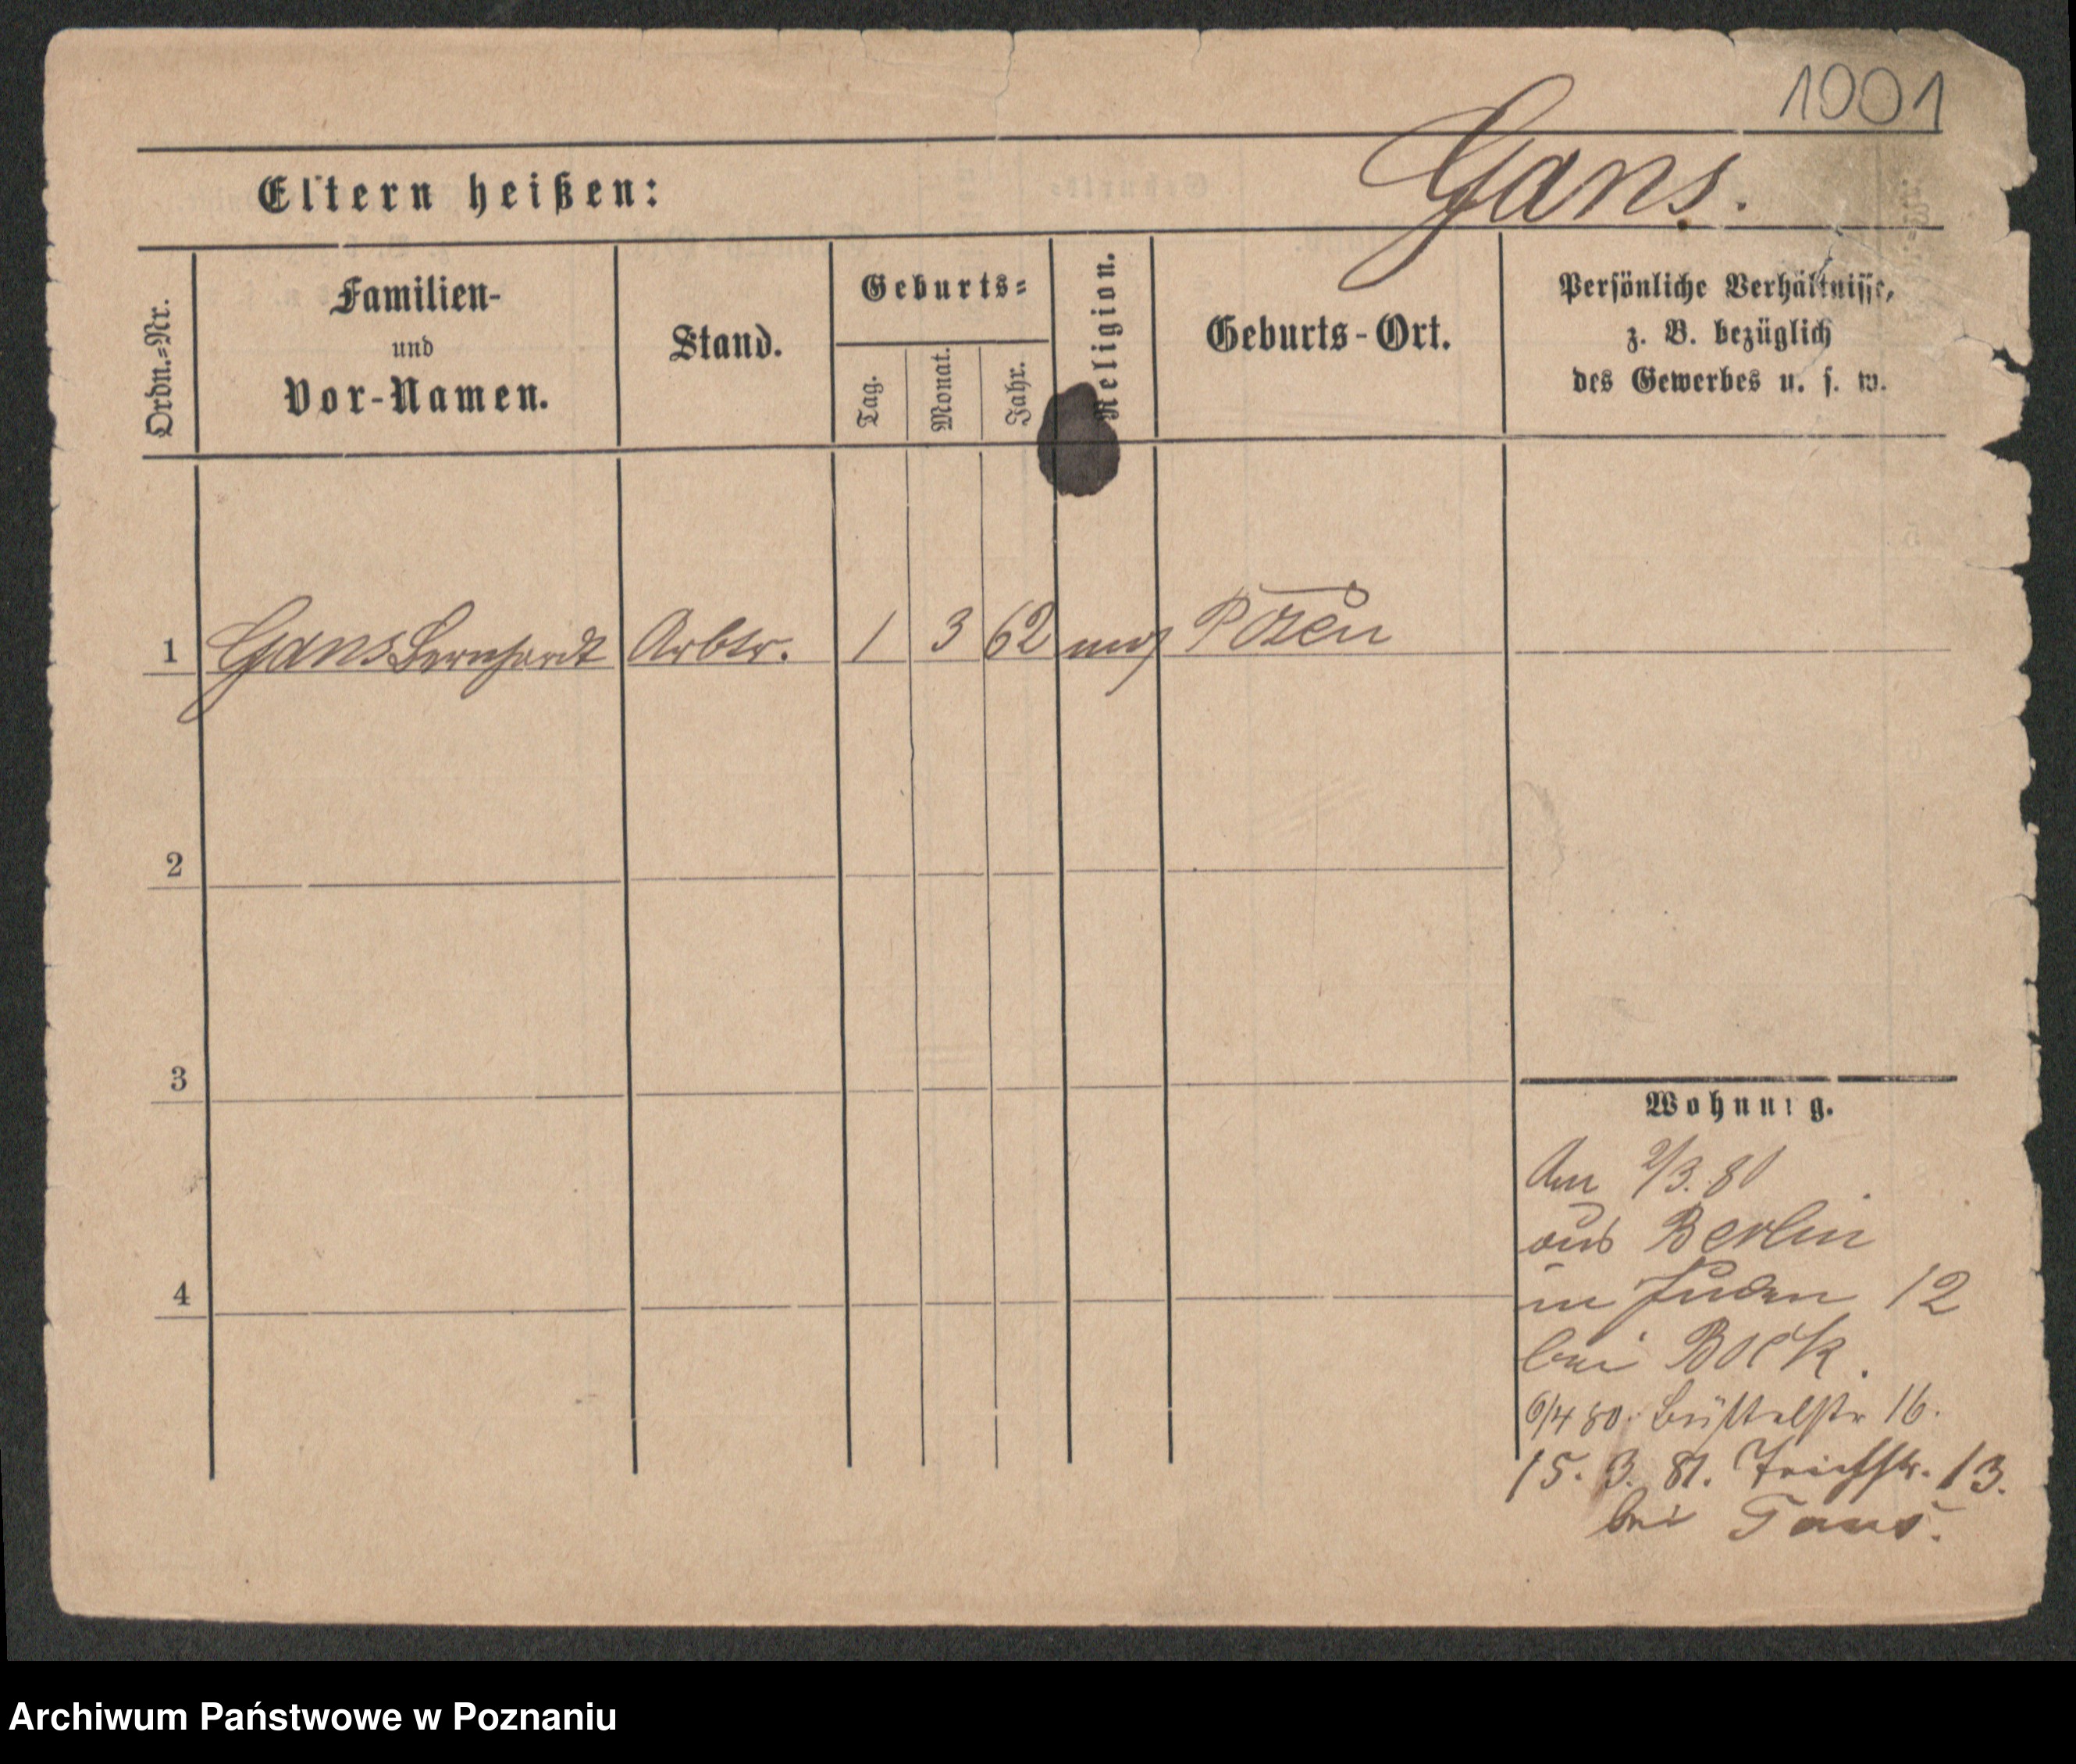 1001
Eltern heißen: Gans.
Ordn.=Nr.
Familien-
und
Vor-Namen.
Stand.
Geburts=
Tag.
Monat.
Jahr.
Religion.
Geburts-Ort.
Persönliche Verhältnisse,
z. B. bezüglich
des Gewerbes u. s. w.
1 Gans Bernhardt Arbtr. 1 3 62 mos Posen
2
3
4
Wohnung.
Am 2/3. 80
aus Berlin
in Juden 12
bei Bock.
6/4 80. Büttelstr 16.
15. 3. 81. 13.
bei
Archiwum Państwowe w Poznaniu